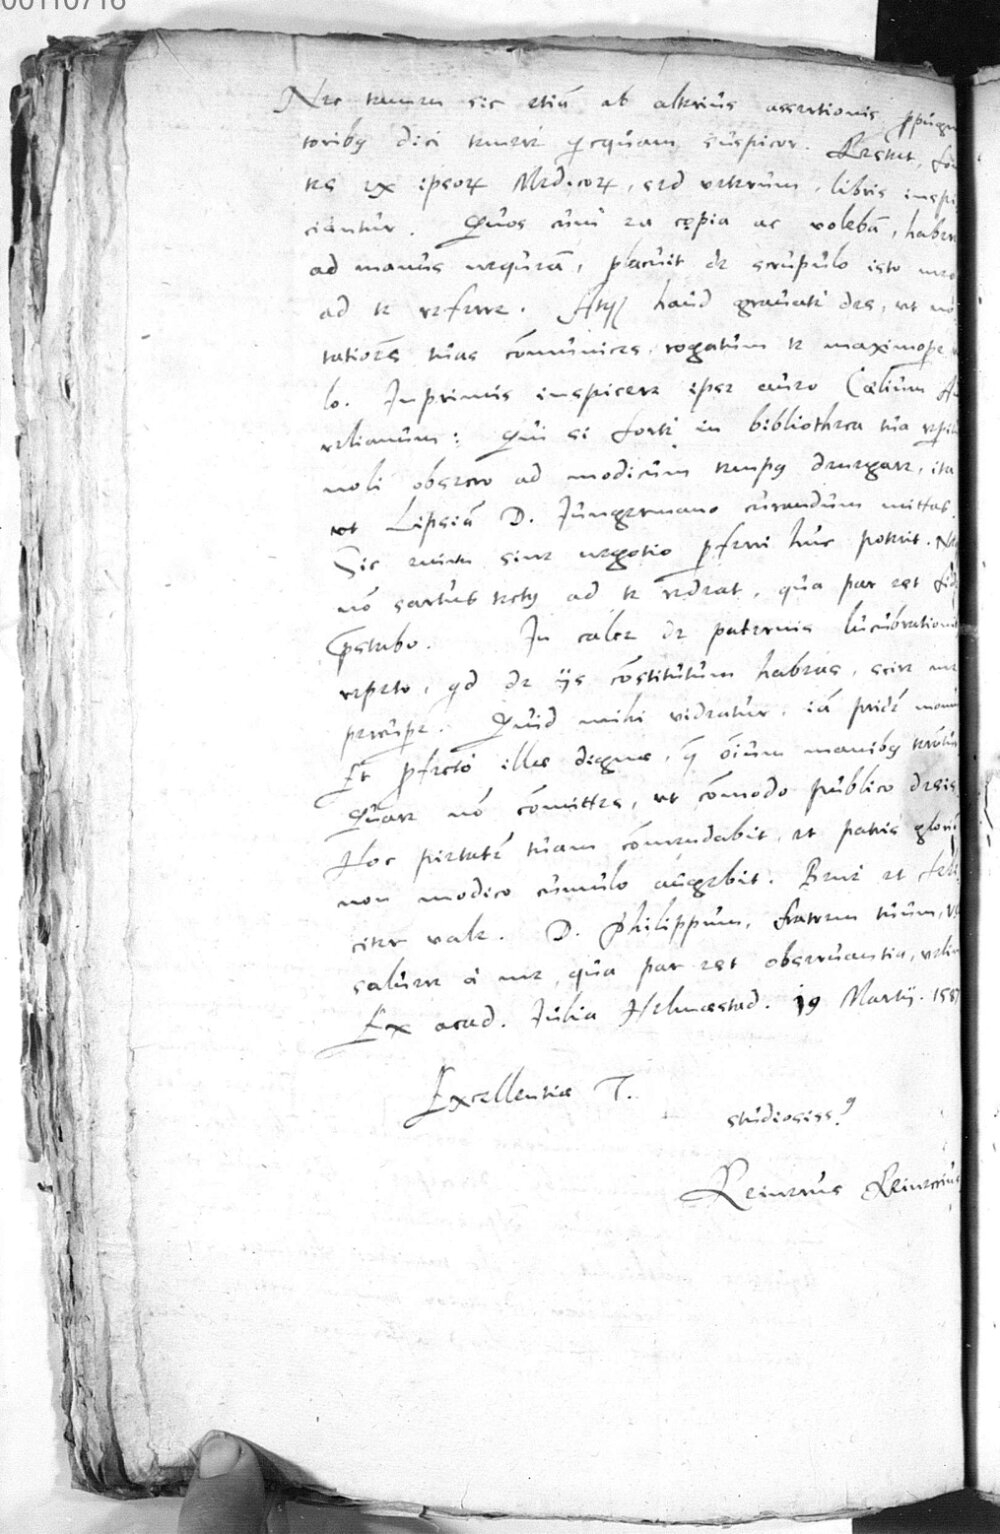 00110716
Nec tamen sic etiã ab alterius assertionis ꝓpugn
toribꝯ dici temere ꝗcquam suspicor. Restat, fon
tes ex ipsoꝝ Medicoꝝ, sed veterum, libris inspi
ciantur. Quos cum ea copia ac volebã, habere
ad manus nequeã, placuit de scrupulo isto meo
ad te referre. Atqꝫ haud gravate des, ut no
tationẽs tuas cõmunices, rogatum te maximoꝑe
lo. Inprimis inspicere ipse aveo Cælium Au
relianum: Qui si forte in bibliotheca tua reperit
noli obsecro ad modicum tempꝯ denegare, ita
ut Lipsiã D. Jungermano curandum mittas.
Sic enim sine negotio ꝑferri huc poterit. Ne
nõ sartus tectꝯ ad te redeat, qua par est fide
ꝓstabo. In calce de paternis lucubrationi
repeto, ꝗd de ijs cõstitutum habeas, scire me
percupere. Quid mihi videatur, iã pridẽ monu
Et ꝓfecto illæ dignæ, ꝗ oĩum manibꝯ terãtur
Quare nõ cõmittes, ut cõmodo publico desis
Hoc pietatẽ tuam cõmendabit, et patris glori
non modico cumulo augebit. Bene et feli
citer vale. D. Philippum, fratrem tuum,
salvere à me, qua par est observantia, velim
Ex acad. Julia Helmæstad. 19 Martij. 158
Excellentiæ T.
studiosissꝰ.
Reinerus Reineccius